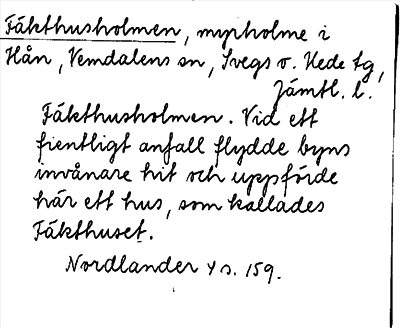 Fäkthusholmen, myrholme i
Hån, Vemdalens sn, Svegs o. Hede tg,
Jämtl. l.
Fäkthusholmen. Vid ett
fientligt anfall flydde byns
invånare hit och uppförde
här ett hus, som kallades
Fäkthuset.
Nordlander 4 s. 159.